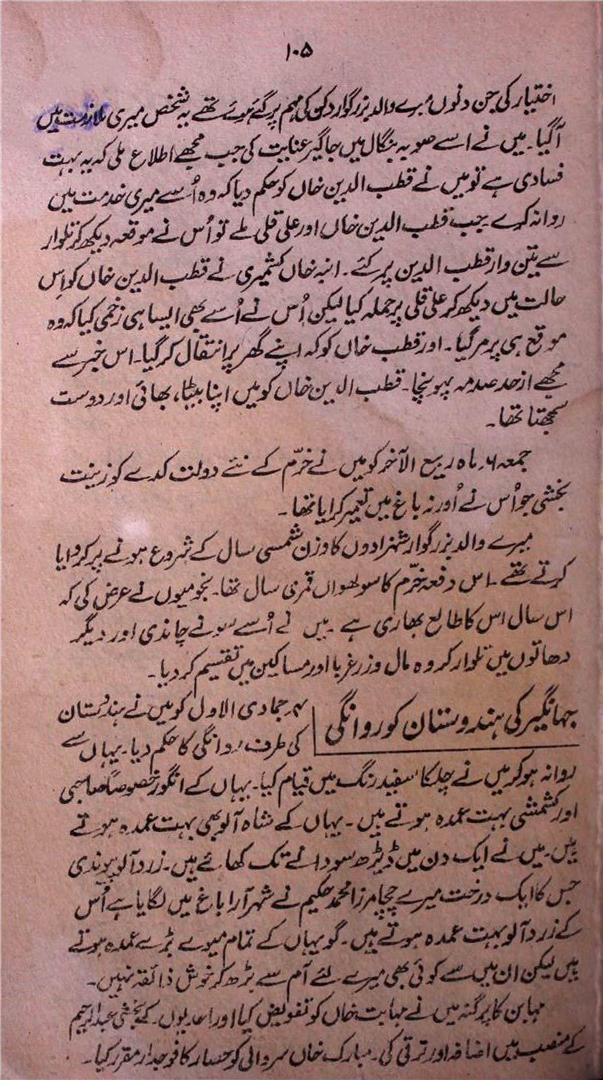 ۱۰۵
اختیار کی جن دنوں میرے والد بزرگوار دکن کی مہم پر گئے ہوئے تھے یہ شخص میری ملازمت میں
آگیا۔ میں نے اسے صوبہ بنگال میں جاگیر عنایت کی جب مجھے اطلاع ملی کہ یہ بہت
فسادی ہے تو میں نے قطب الدین خاں کو حکم دیا کہ وہ اُسے میری خدمت میں
روانہ کرے جب قطب الدین خاں اور علی قلی ملے تو اُس نے موقعہ دیکھ کر تلوار
سے تین وار قطب الدین پر کئے۔ انبہ خاں کشمیری نے قطب الدین خاں کو اِس
حالت میں دیکھ کر علی قلی پر حملہ کیا لیکن اُس نے اُسے بھی ایسا ہی زخمی کیا کہ وہ
موقع ہی پر مر گیا۔ اور قطب خاں کوکہ اپنے گھر پر انتقال کر گیا۔ اس خبر سے
مجھے از حد صدمہ پہونچا۔ قطب الدین خاں کو میں اپنا بیٹا، بھائی اور دوست
سمجھتا تھا۔
جمعہ ۶ ماہ ربیع الآخر کو میں نے خرّم کے نئے دولت کدے کو زینت
بخشی جو اُس نے اُورنہ باغ میں تعمیر کرایا تھا۔
میرے والد بزرگوار شہزادوں کا وزن شمسی سال کے شروع ہونے پر کروایا
کرتے تھے۔ اس دفعہ خرّم کا سولھواں قمری سال تھا۔ نجومیوں نے عرض کی کہ
اس سال اس کا طالع بھاری ہے۔ میں نے اُسے سونے چاندی اور دیگر
دھاتوں میں تلوا کر وہ مال و زر غربا اور مساکین میں تقسیم کر دیا۔
جہانگیر کی ہندوستان کو روانگی
۴ جمادی الاول کو میں نے ہندوستان
کی طرف روانگی کا حکم دیا۔ یہاں سے
روانہ ہو کر میں نے جلگا سفید رنگ میں قیام کیا۔ یہاں کے انگور خصوصاً صاحبی
اور کشمشی بہت عمدہ ہوتے ہیں۔ یہاں کے شاہ آلو بھی بہت عمدہ ہوتے
ہیں۔ میں نے ایک دن میں ڈیڑھ سو دانے تک کھائے ہیں۔ زرد آلو پوندی
جس کا ایک درخت میرے چچا مرزا محمد حکیم نے شہر آرا باغ میں لگایا ہے اُس
کے زرد آلو بہت عمدہ ہوتے ہیں۔ گو یہاں کے تمام میوے بڑے عمدہ ہوتے
ہیں لیکن ان میں سے کوئی بھی میرے لئے آم سے بڑھ کر خوش ذائقہ نہیں۔
مہابن کا پرگنہ میں نے مہابت خاں کو تفویض کیا اور احدیوں کے بخشی عبدالرحیم
کے منصب میں اضافہ اور ترقی کی۔ مبارک خاں سروانی کو حصار کا فوجدار مقرر کیا۔